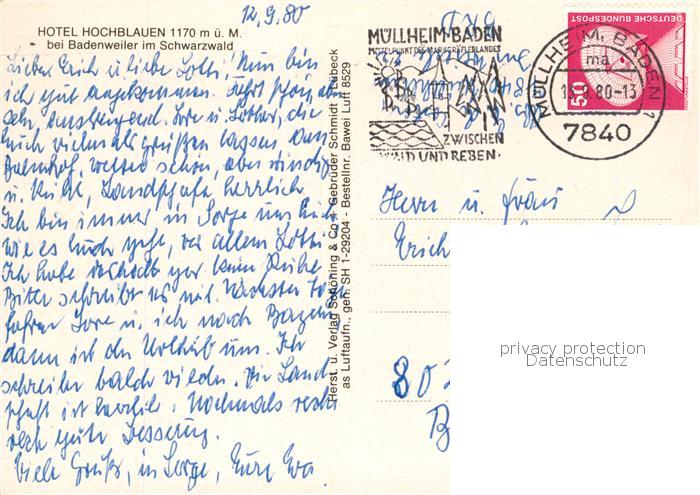 12.9.80
HOTEL HOCHBLAUEN 1170 m ü. M.
bei Badenweiler im Schwarzwald
Lieber Erich u. liebe Lotti! Nun bin
ich gut angekommen. Fahrt schön aber
sehr anstrengend. Lore u. Lothar, die
Euch vielmals grüßen lassen, am
Bahnhof. Wetter schön, aber windig
u. kühl, Landschaft herrlich.
Ich bin immer in Sorge um Euch
wie es Euch geht, vor allem Lotti.
Ich habe deshalb gar keine Ruhe.
Bitte schreibt es mir. Nächsten
fahren Lore u. ich nach
dann ist der Urlaub um. Ich
schreibe bald wieder. Die Land-
schaft ist herrlich. Nochmals recht
recht gute Besserung.
Viele Grüße, in Sorge, Eure Eva.
Herst. u. Verlag Schöning & Co + Gebrüder Schmidt Lübeck
as Luftaufn., gen. SH 1-29204 - Bestellnr. Bawei Luft 8529
MÜLLHEIM·BADEN
MITTELPUNKT DES MARKGRÄFLERLANDES
ZWISCHEN
WALD UND REBEN·
MÜLLHEIM, BADEN 1
ma
80-13
7840
DEUTSCHE BUNDESPOST
50
Herrn u. Frau
Erich
80
privacy protection
Datenschutz